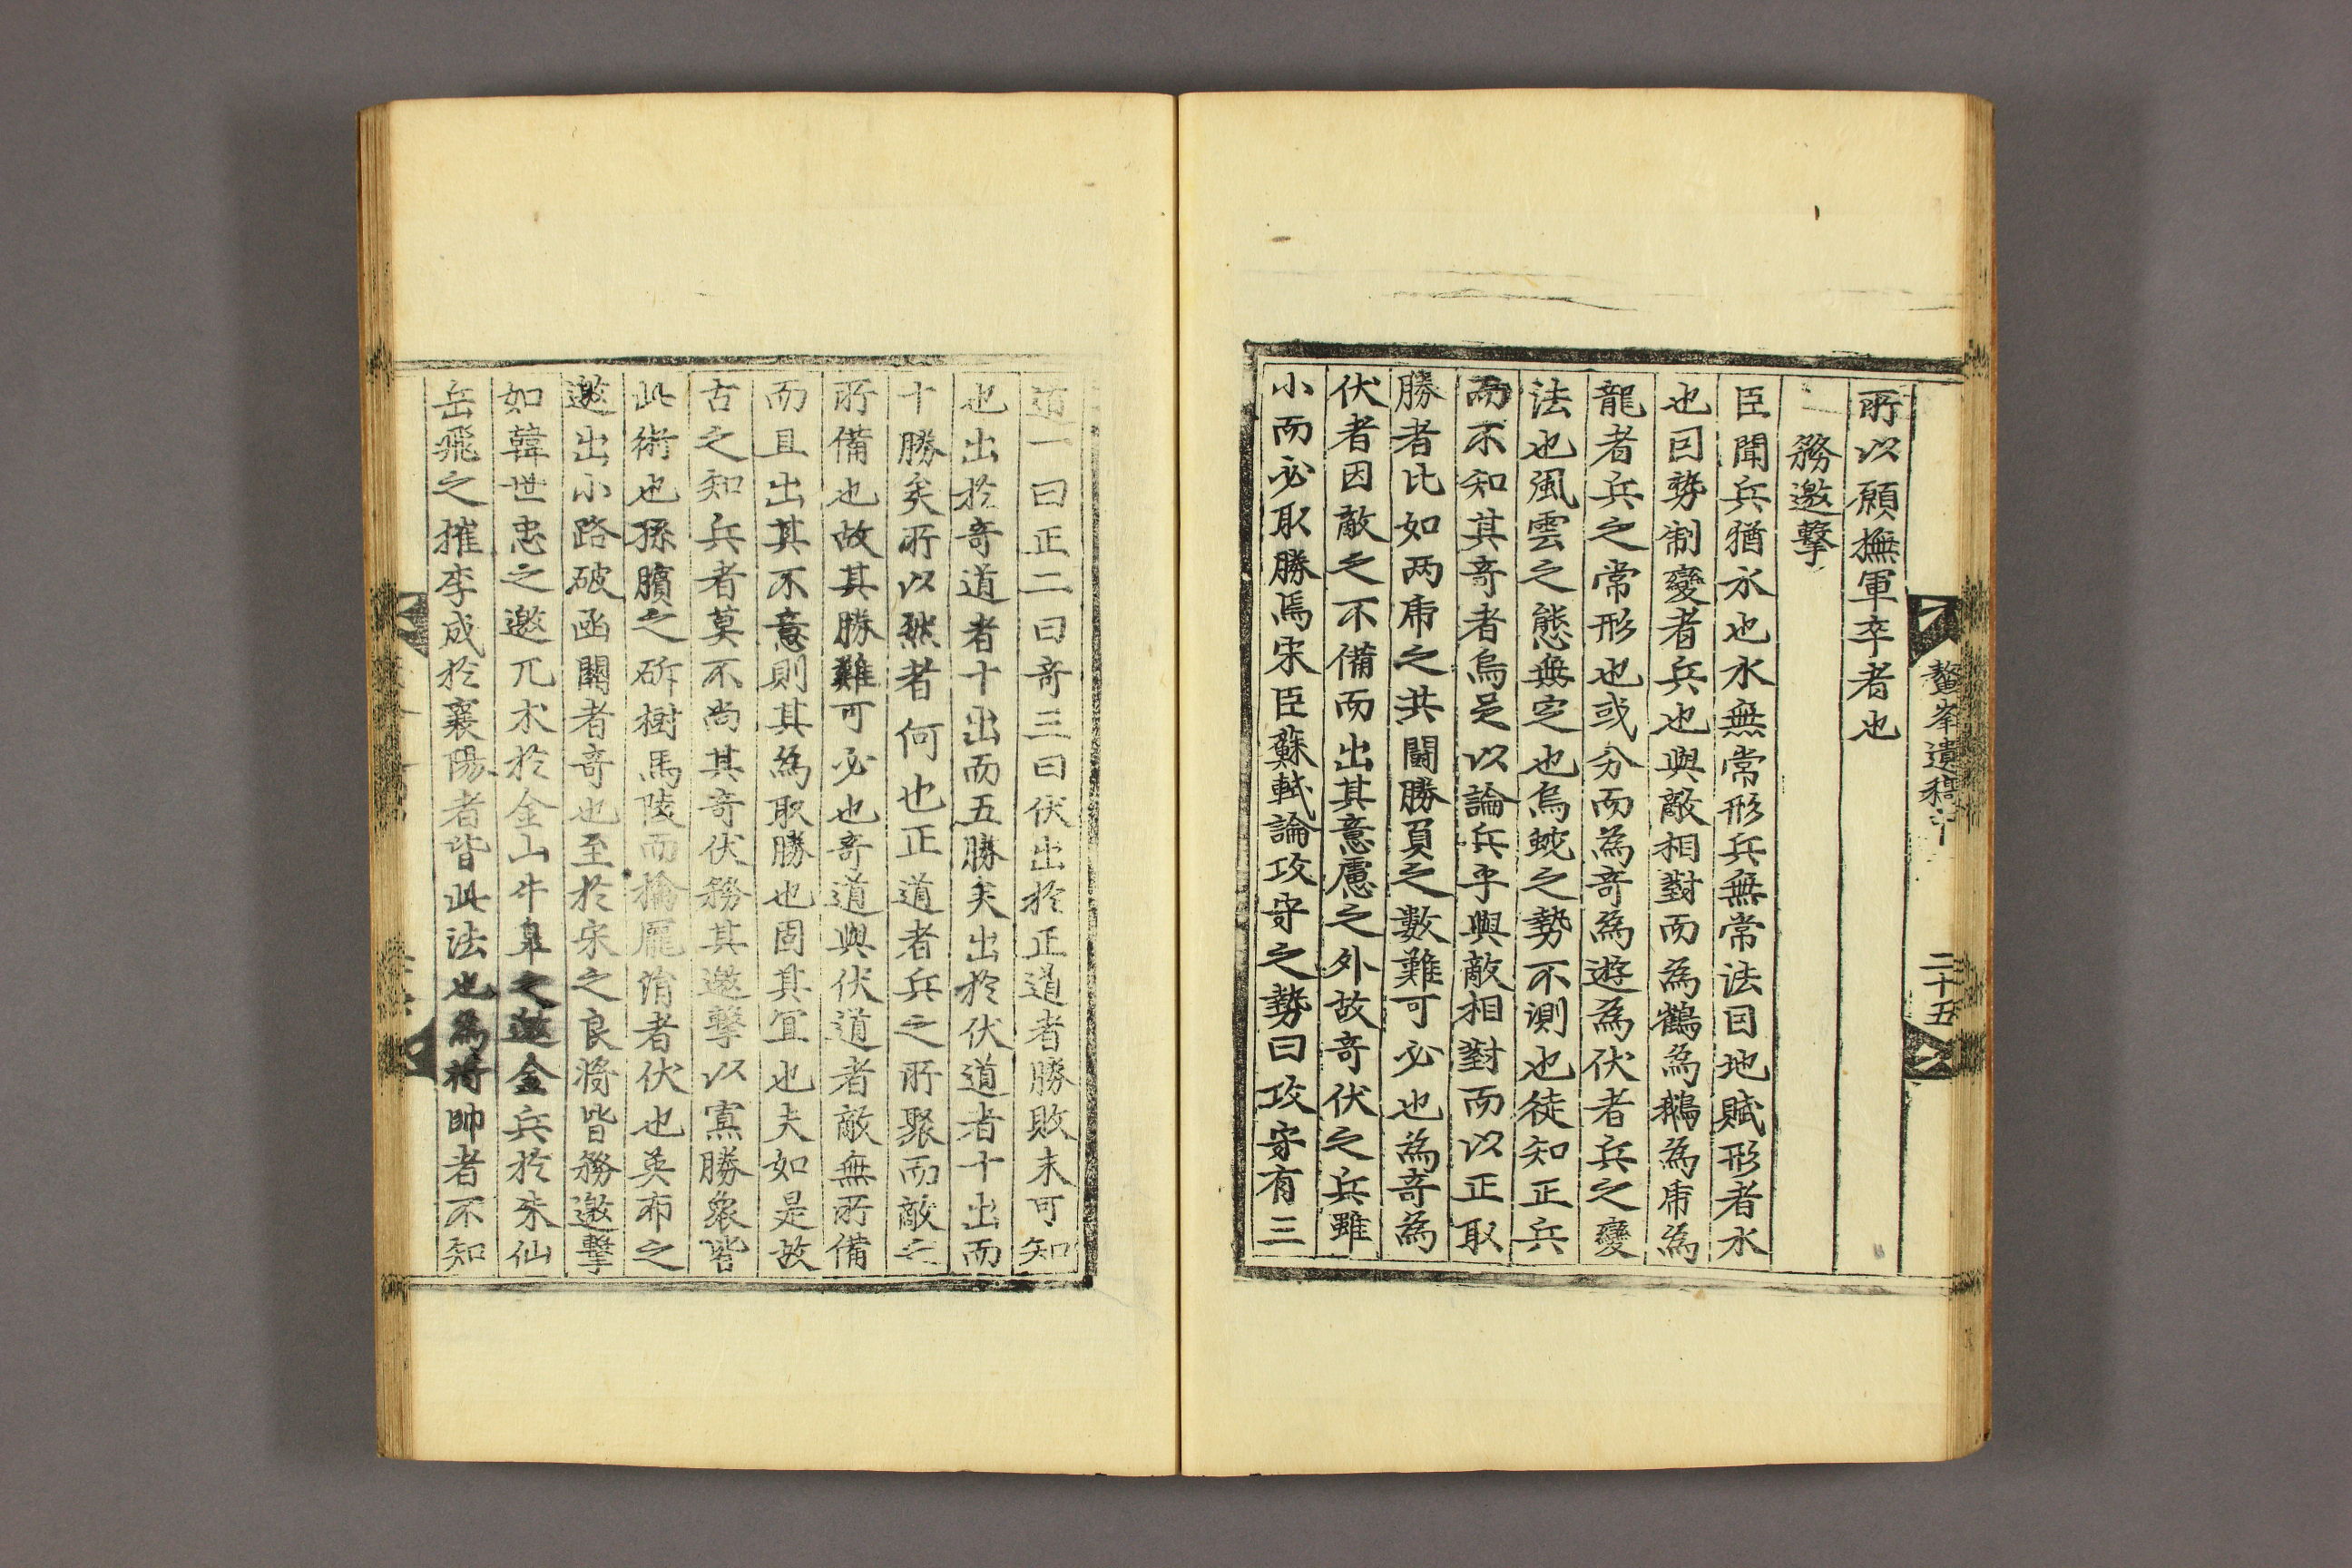 鰲峯遺稿
二十五
所以願撫軍卒者也
務邀擊
臣聞兵猶水也水無常形兵無常法因地賦形者水
也因勢制變者兵也與敵相對而為鶴為鵝為虎為
龍者兵之常形也或分而為奇為遊為伏者兵之變
法也風雲之態無定也鳥蛇之勢不測也徒知正兵
而不知其奇者烏足以論兵乎與敵相對而以正取
勝者比如两虎之共鬪勝負之數難可必也為奇為
伏者因敵之不備而出其意慮之外故奇伏之兵雖
小而必取勝焉宋臣蘇軾論攻守之勢曰攻守有三
道一曰正二曰奇三曰伏出於正道者勝敗未可知
也出於奇道者十出而五勝矣出於伏道者十出而
十勝矣所以然者何也正道者兵之所聚而敵之
所備也故其勝難可必也奇道與伏道者敵無所備
而且出其不意則其為取勝也固其宜也夫如是故
古之知兵者莫不尚其奇伏務其邀擊以寡勝衆皆
此術也孫臏之斫樹馬陵而擒龐涓者伏也英布之
邀出小路破函關者奇也至於宋之良將皆務邀擊
如韓世忠之邀兀朮於金山牛皐之邀金兵於朱仙
岳飛之摧李成於襄陽者皆此法也為將帥者不知